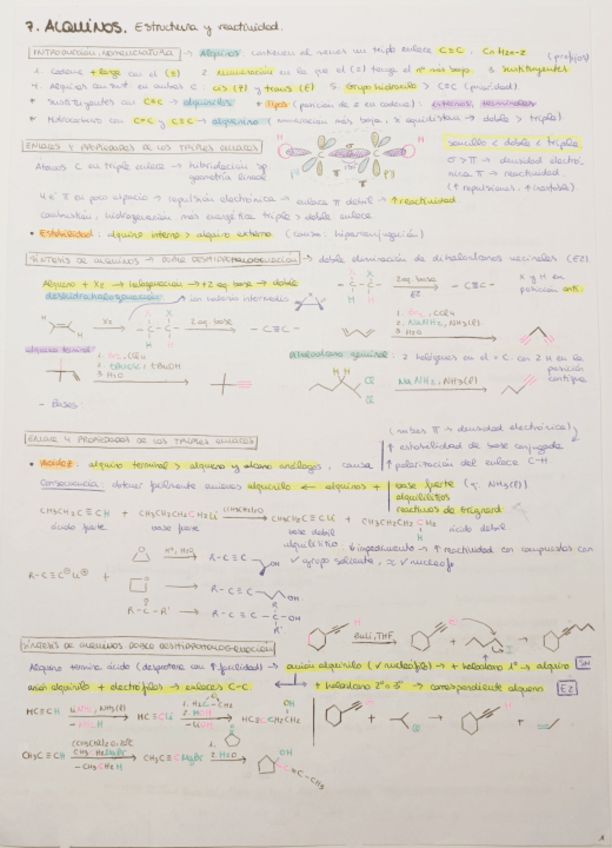 7. ALQUINOS. Estructura y reactividad.
INTRODUCCIÓN, NOMENCLATURA → Alquinos: contienen al menos un triple enlace C≡C. CnH2n-2 (prefijos)
1. Cadena + larga con el (≡) 2. numeración en la que el (≡) tenga el nº más bajo. 3. sustituyentes
4. Alquinos con sust en ambos C: cis (Z) y trans (E) 5. Grupo hidroxilo > C≡C (prioridad).
* Sustituyentes con C≡C → alquinilos * Tipos (posición de ≡ en cadena): internos, terminales
* Hidrocarburo con C=C y C≡C → alquenino (numeración más baja, si equidistan → doble > triple).
ENLACES Y PROPIEDADES DE LOS TRIPLES ENLACES
sencillo < doble < triple
Átomos C en triple enlace → hibridación sp
geometría lineal
σ > π → densidad electró-
nica π → reactividad
(↑ repulsiones, ↑ inestable).
4 e⁻ π en poco espacio → repulsión electrónica → enlace π débil → ↑ reactividad
combustión, hidrogenación más energética triple > doble enlace
• Estabilidad: alquino interno > alquino externo (causa: hiperconjugación)
SÍNTESIS DE ALQUINOS → DOBLE DESHIDROHALOGENACIÓN → doble eliminación de dihaloalcanos vecinales (E2)
Alqueno + X2 → halogenación → +2 eq. base → doble
deshidrohalogenación
ion halonio intermedio
2 eq. base
E2
- C≡C -
X y H en
posición anti.
X2
2 eq. base
- C≡C -
1. Br2, CCl4
2. NaNH2, NH3(l)
3. H2O
alquino terminal
1. Br2, CCl4
2. tBuOK, tBuOH
3. H2O
dihaloalcano geminal: 2 halógenos en el = C. con 2 H en la
posición
contigua
NaNH2, NH3(l)
- Bases:
ENLACE Y PROPIEDADES DE LOS TRIPLES ENLACES
(nubes π → densidad electrónica)
↑ estabilidad de base conjugada
• Acidez: alquino terminal > alqueno y alcano análogos, causa ↑ polarización del enlace C-H
Consecuencia: obtener fácilmente aniones alquinilo ← alquinos + base fuerte (ej. NH2(l))
alquillitios
reactivos de Grignard
CH3CH2C≡CH + CH3CH2CH2CH2Li → CH3CH2C≡CLi + CH3CH2CH2CH2
H
ácido fuerte base fuerte base débil ácido débil
alquillitio
↓ impedimento → ↑ reactividad con compuestos con
✓ grupo saliente, ✓ nucleófilo
H⁺, H2O
R-C≡C
OH
R-C≡C⊖Li⊕ +
R-C≡C OH
R-C-R' → R-C≡C-C-OH
R'
BuLi, THF
SÍNTESIS DE ALQUINOS DOBLE DESHIDROHALOGENACIÓN
Alquino termina ácido (desprotona con ↑ facilidad) → anión alquinilo (✓ nucleófilo) → + haloalcano 1º → alquino SN
anión alquinilo + electrófilos → enlaces C-C
+ haloalcano 2º o 3º → correspondiente alqueno E2
HC≡CH LiNH2, NH3(l) HC≡CLi
- NH2H
2. HOH
- LiOH
HC≡CCH2CH2
OH
CH3C≡CH CH3CH2MgBr CH3C≡CMgBr
- CH3CH2H
2. H2O
OH
C≡C-CH3
1